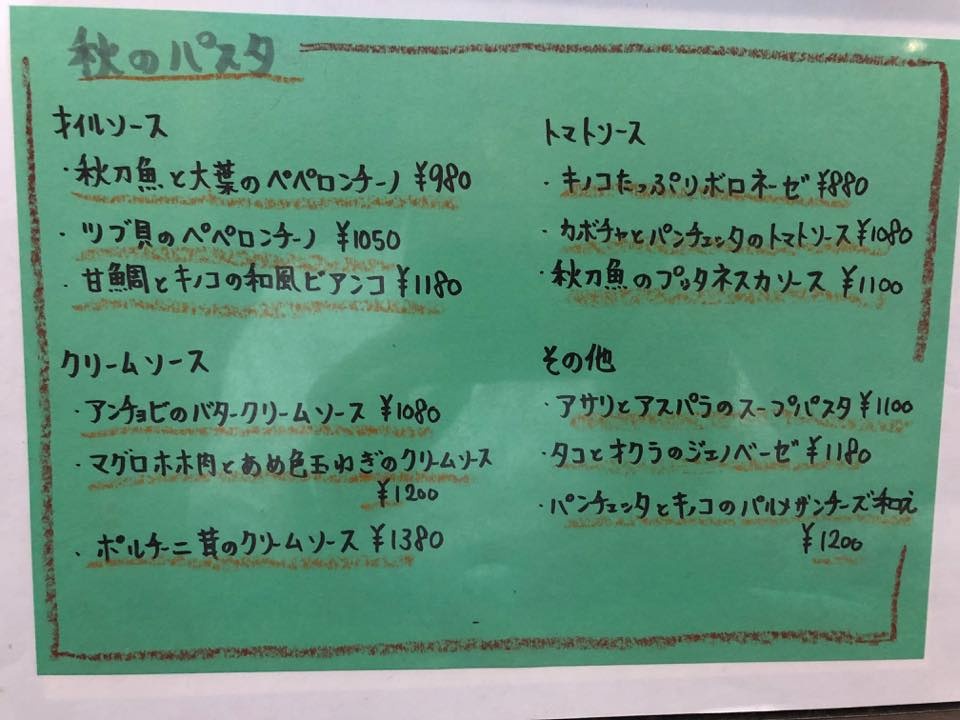 秋のパスタ
オイルソース
・秋刀魚と大葉のペペロンチーノ ¥980
・ツブ貝のペペロンチーノ ¥1050
・甘鯛とキノコの和風ビアンコ ¥1180
クリームソース
・アンチョビのバタークリームソース ¥1080
・マグロホホ肉とあめ色玉ねぎのクリームソース
¥1200
・ポルチーニ茸のクリームソース ¥1380
トマトソース
・キノコたっぷりボロネーゼ ¥880
・カボチャとパンチェッタのトマトソース ¥1080
・秋刀魚のプッタネスカソース ¥1100
その他
・アサリとアスパラのスープパスタ ¥1100
・タコとオクラのジェノベーゼ ¥1180
・パンチェッタとキノコのパルメザンチーズ和え
¥1200